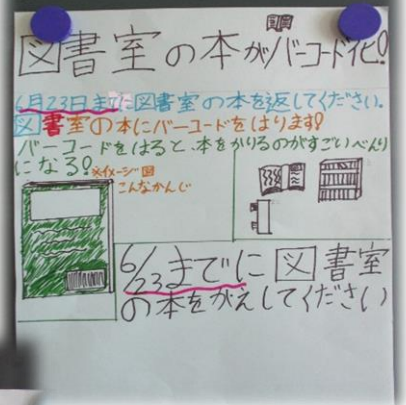 図書室の本がバーコード化!
6月23日までに図書室の本を返してください。
図書室の本にバーコードをはります!
バーコードをはると、本をかりるのがすごいべんり
になる!
※イメージ図
こんなかんじ
6/23までに図書室
の本をかえしてください